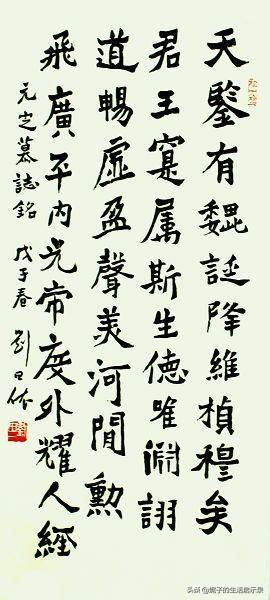 天鑒有魏誕降維楨穆矣
君王寔属斯生德唯渊詡
道暢虛盈聲美河間勳
飛廣平内光帝度外耀人經
元定墓誌銘 戊子春 劉
头条 @子的生活启示录